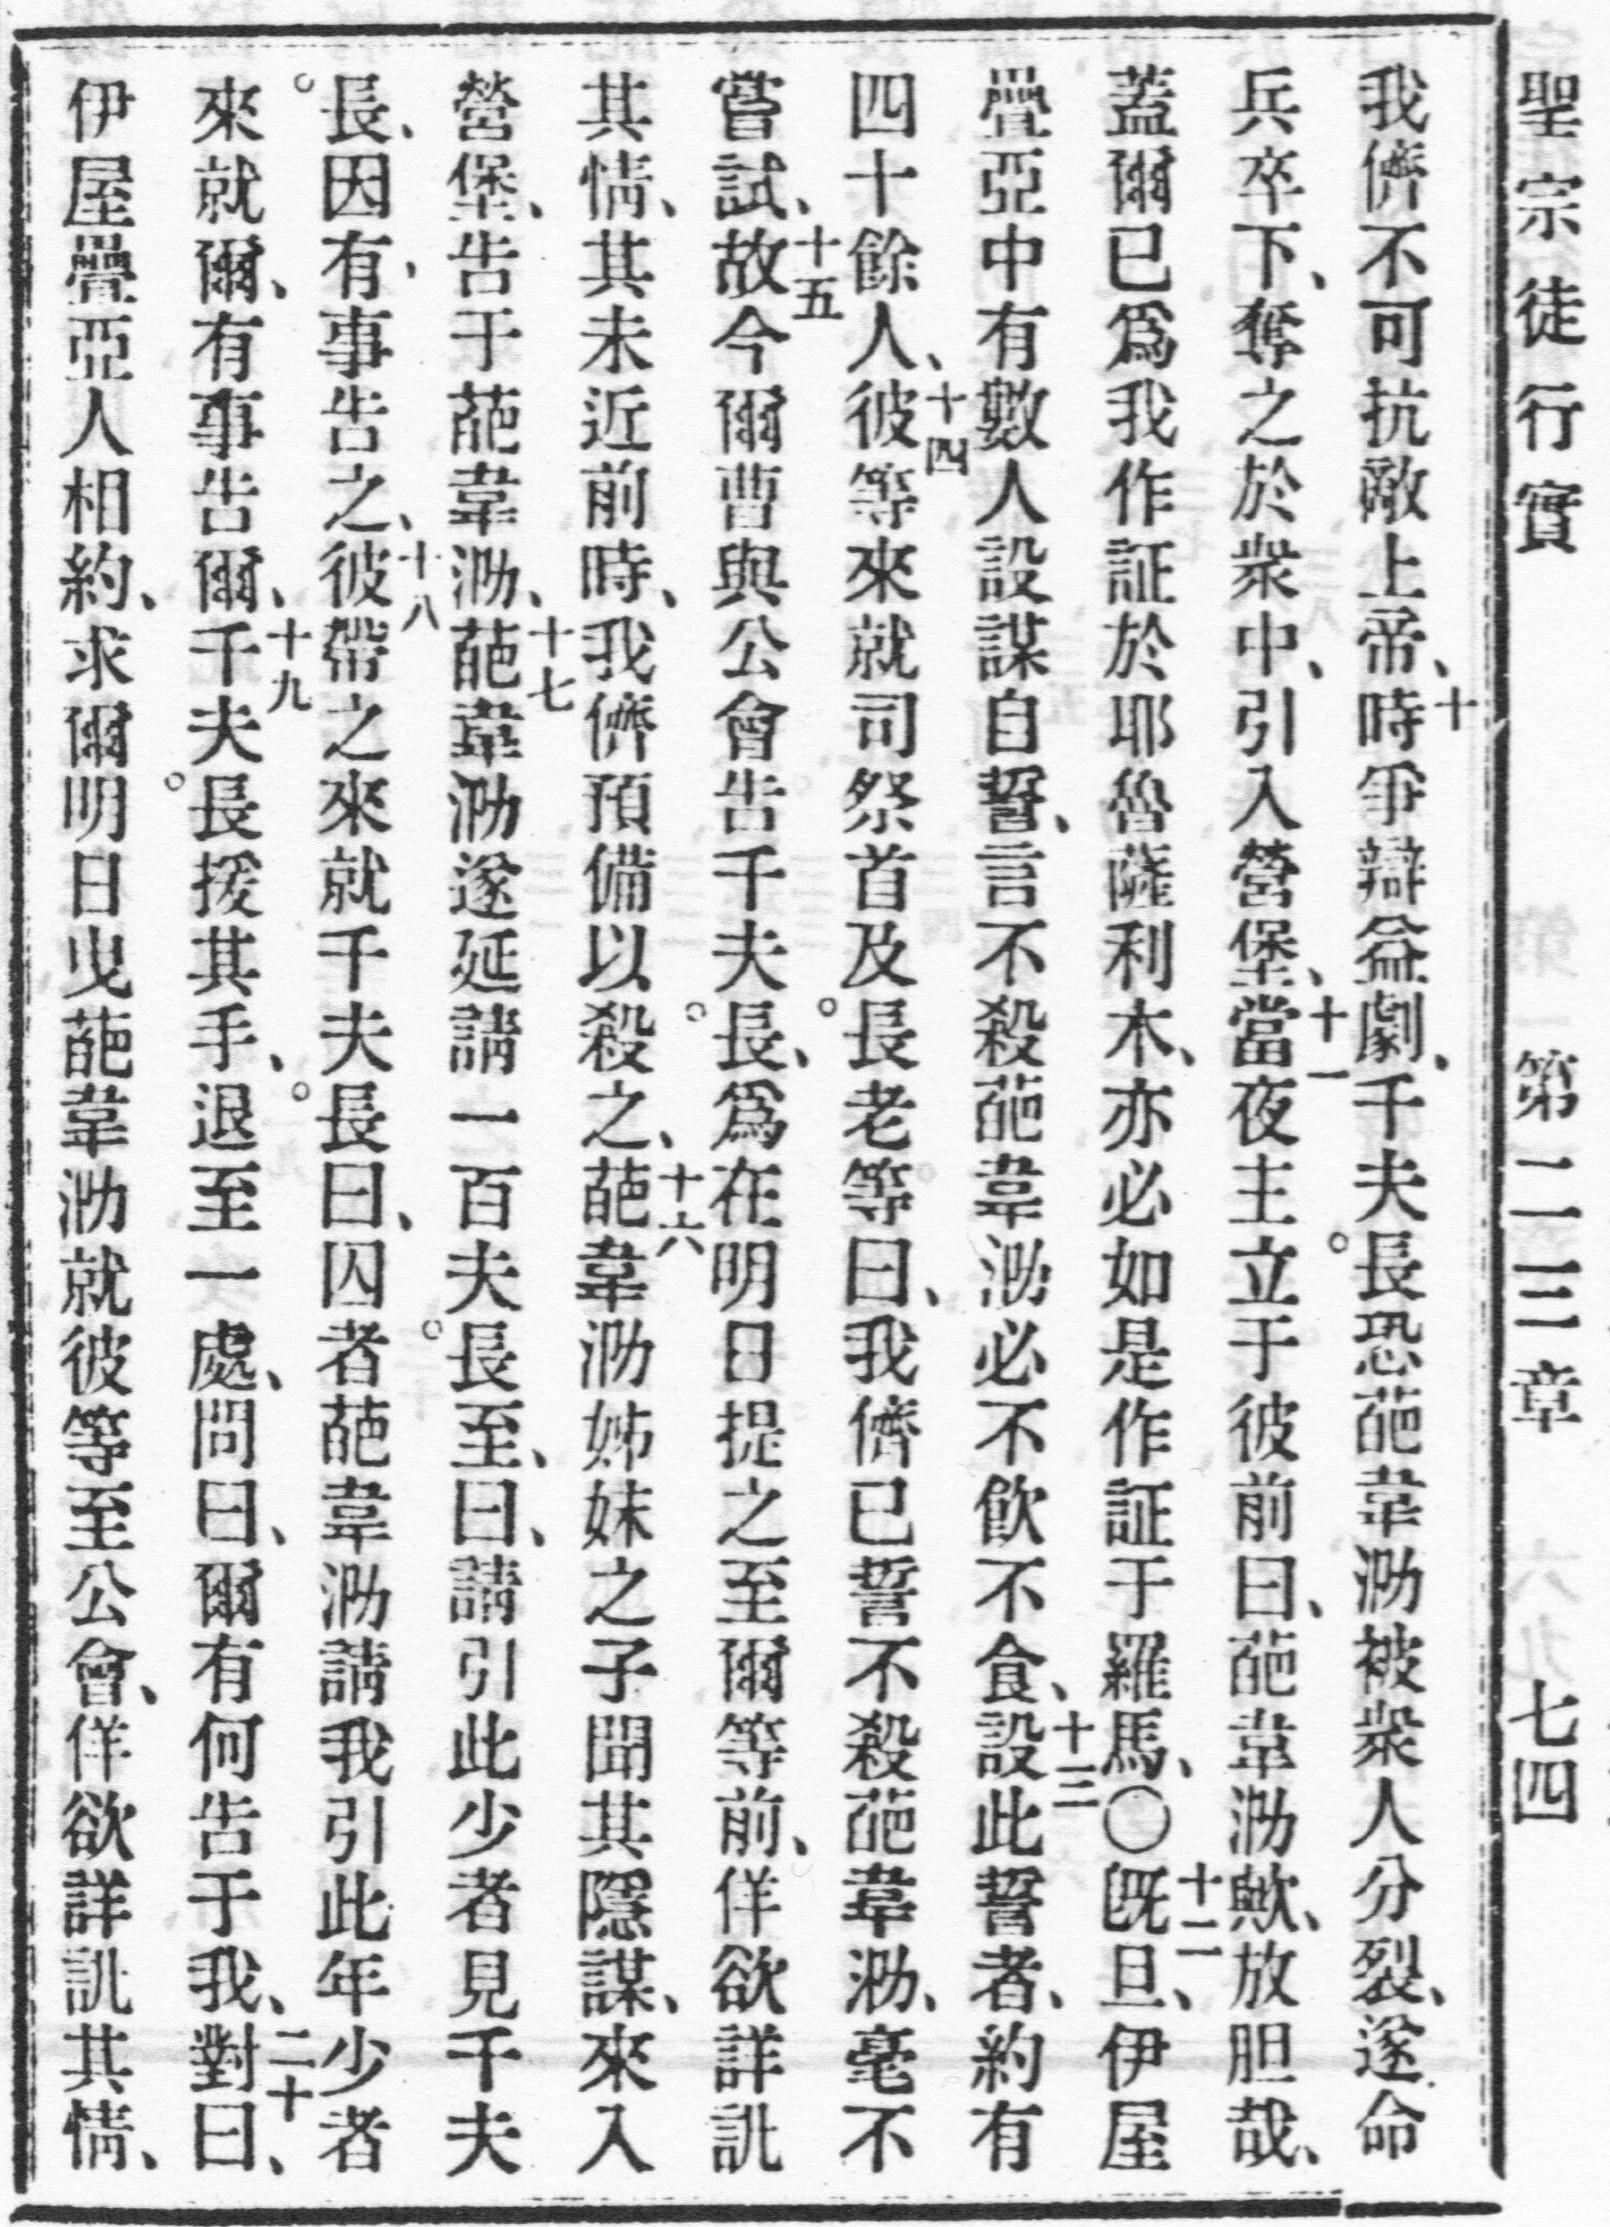 聖宗徒行實 第二十三章 七四
我儕不可抗敵上帝、十時爭辯益劇、千夫長恐葩韋泐被衆人分裂、遂命
兵卒下、奪之於衆中、引入營堡、十一當夜主立于彼前曰、葩韋泐歟、放胆哉、
蓋爾已爲我作証於耶魯薩利木、亦必如是作証于羅馬、〇十二旣旦、伊屋
疊亞中有數人設謀自誓、言不殺葩韋泐必不飲不食、十三設此誓者、約有
四十餘人、十四彼等來就司祭首及長老等曰、我儕已誓不殺葩韋泐、毫不
嘗試、十五故今爾曹與公會告千夫長、爲在明日提之至爾等前、佯欲詳訊
其情、其未近前時、我儕預備以殺之、十六葩韋泐姊妹之子聞其隱謀、來入
營堡、告于葩韋泐、十七葩韋泐遂延請一百夫長至、曰、請引此少者見千夫
長、因有事告之、十八彼帶之來就千夫長曰、囚者葩韋泐請我引此年少者
來就爾、有事告爾、十九千夫長援其手、退至一處、問曰、爾有何告于我、二十對曰、
伊屋疊亞人相約、求爾明日曳葩韋泐就彼等至公會、佯欲詳訊其情、